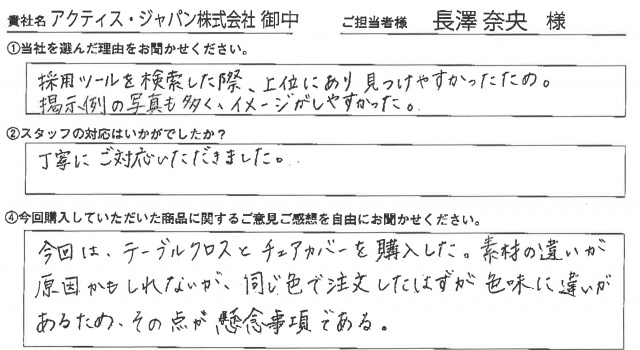 貴社名 アクティス・ジャパン株式会社 御中 ご担当者様 長澤 奈央 様
①当社を選んだ理由をお聞かせください。
採用ツールを検索した際、上位にあり見つけやすかったため。
掲示例の写真も多く、イメージがしやすかった。
②スタッフの対応はいかがでしたか？
丁寧にご対応いただきました。
④今回購入していただいた商品に関するご意見ご感想を自由にお聞かせください。
今回は、テーブルクロスとチェアカバーを購入した。素材の違いが
原因かもしれないが、同じ色で注文したはずが色味に違いが
あるため、その点が懸念事項である。